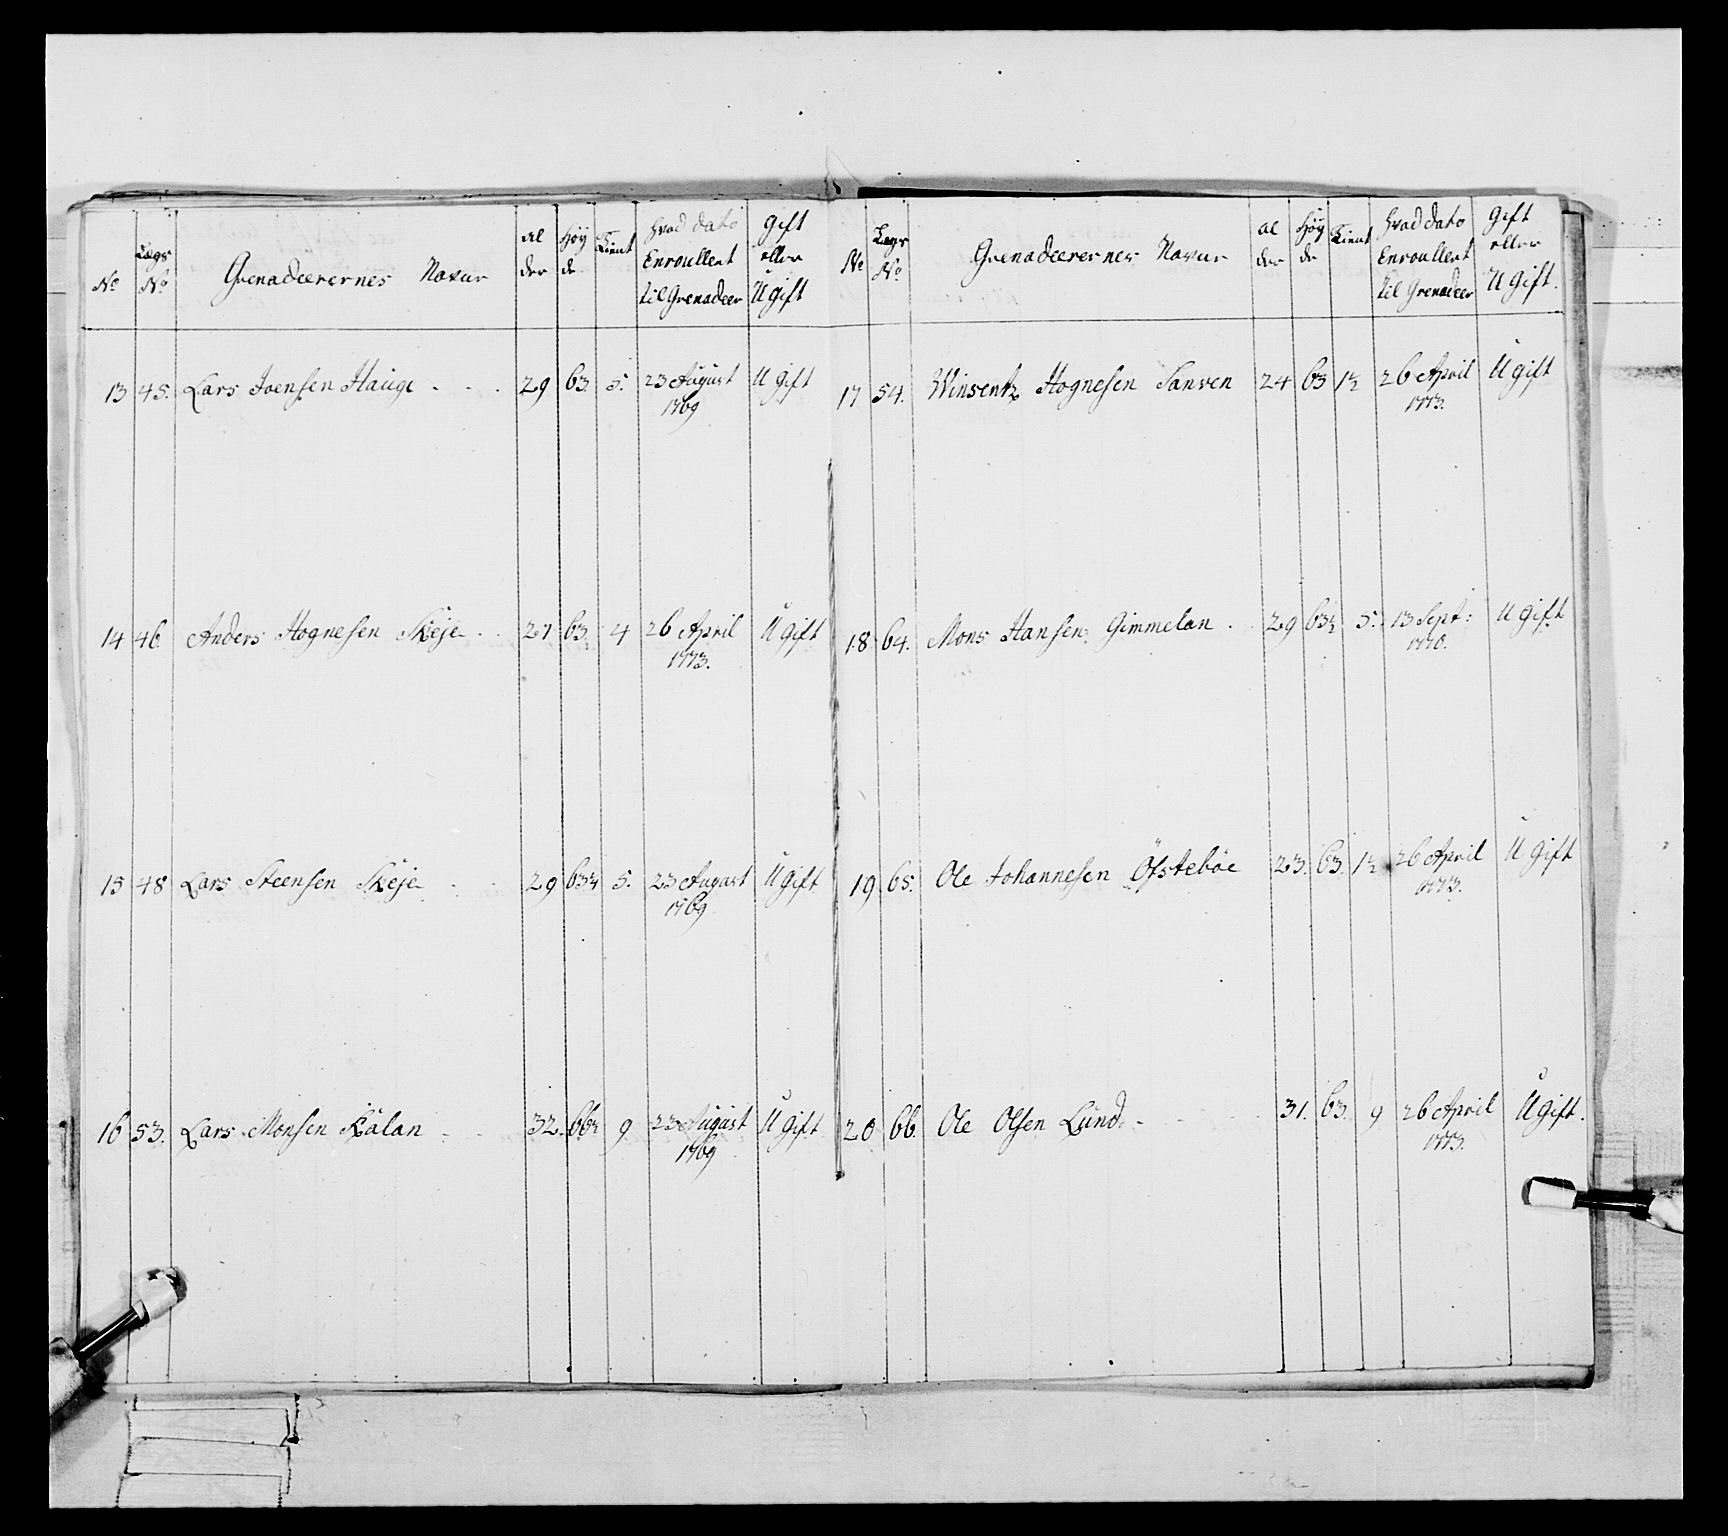 No Lægs No Grenadeerernes Navne Al der Høy de Tient Hvad dato Enroullert til Grenadeer Gift eller U gift
13 45. Lars Joensen Hauge - - - 29 63. 5. 23 August 1769 U gift
14 46 Anders Hognesen Skeje - - 27 63. 4 26 April 1773. U gift
15 48 Lars Steensen Skeje - - 29 63½ 5. 23 August 1769 U gift
16 53. Lars Monsen Kålan - - 32. 66½ 9 23 August 1769 U gift
No Lægs No Grenadeerernes Navne Al der Høy de Tient Hvad dato Enroullert til Grenadeer Gift eller U gift.
17 54. Winsentz Hognesen Sanven 24 63 1½ 26 April 1773. U gift
18 64. Mons Hansen Gimmelan - - 29 63½ 5. 13 Sept: 1770. U gift
19 65. Ole Johannesen Öfstebøe 23. 63. 1½ 26 April 1773. U gift
20 66. Ole Olsen Lund - - - 31. 63. 9 26 April 1773. U gift.